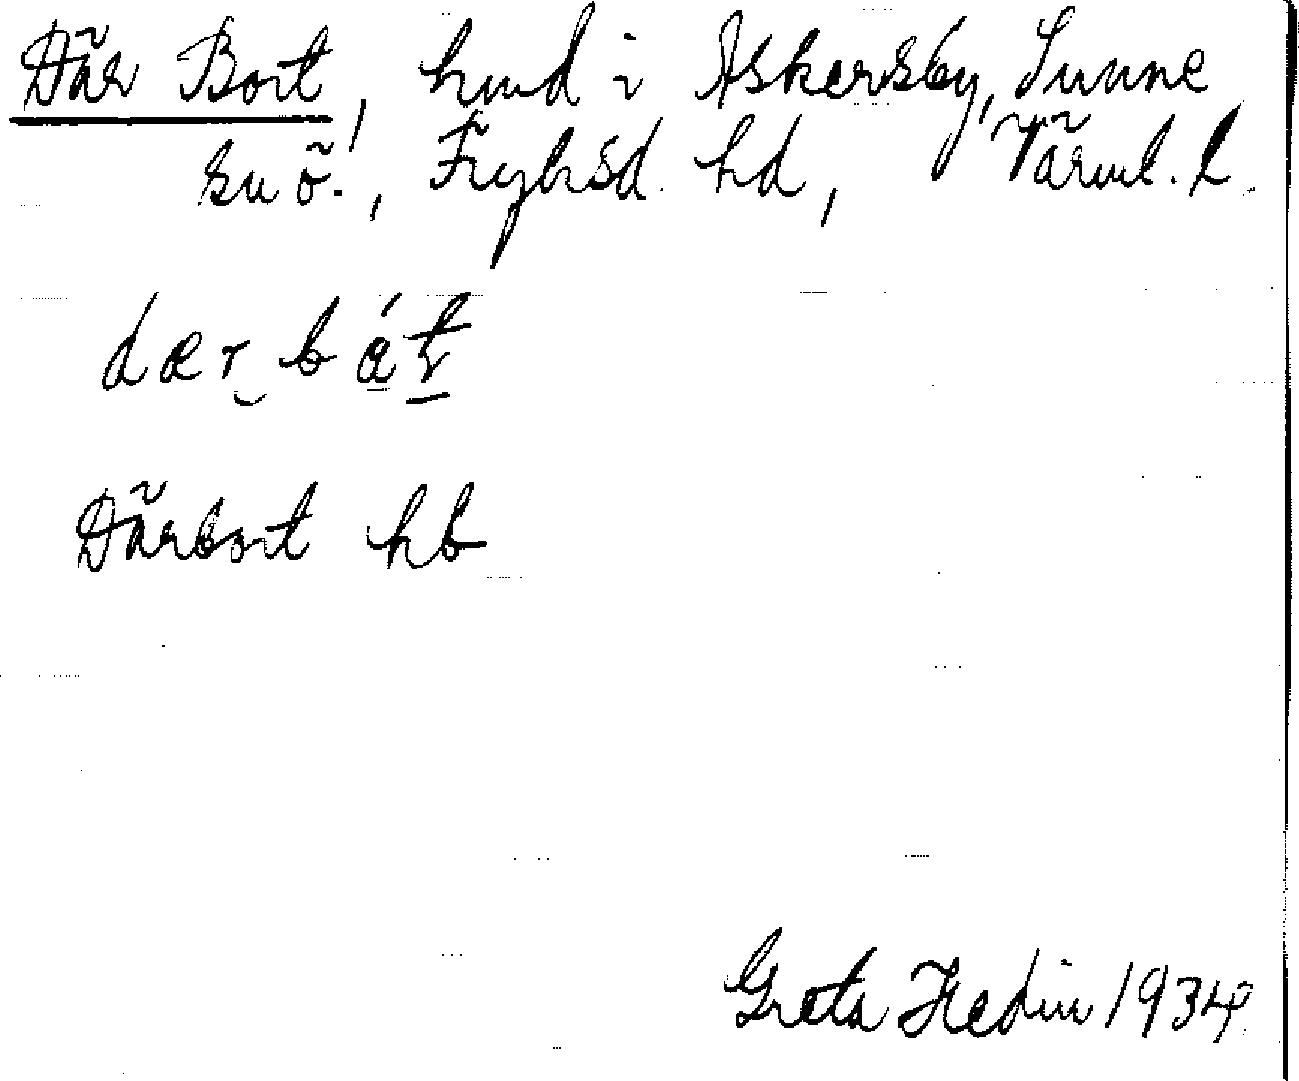 Där Bort, hmd i Askersby, Sunne
sn ö., Fryksd. hd, Värml. l.
dær bát
Därbort hb
Greta Hedin 1934.